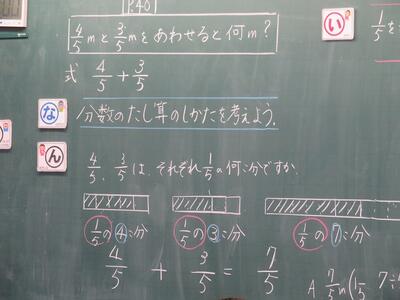 P.40
4/5 mと3/5 mをあわせると何m?
い
1/5を
式 4/5 + 3/5
な
分数のたし算のしかたを考えよう。
ん
4/5、3/5は、それぞれ1/5の何こ分ですか。
1/5の④こ分 1/5の③こ分 1/5の⑦こ分
4/5 + 3/5 = 7/5
A. 7/5 m